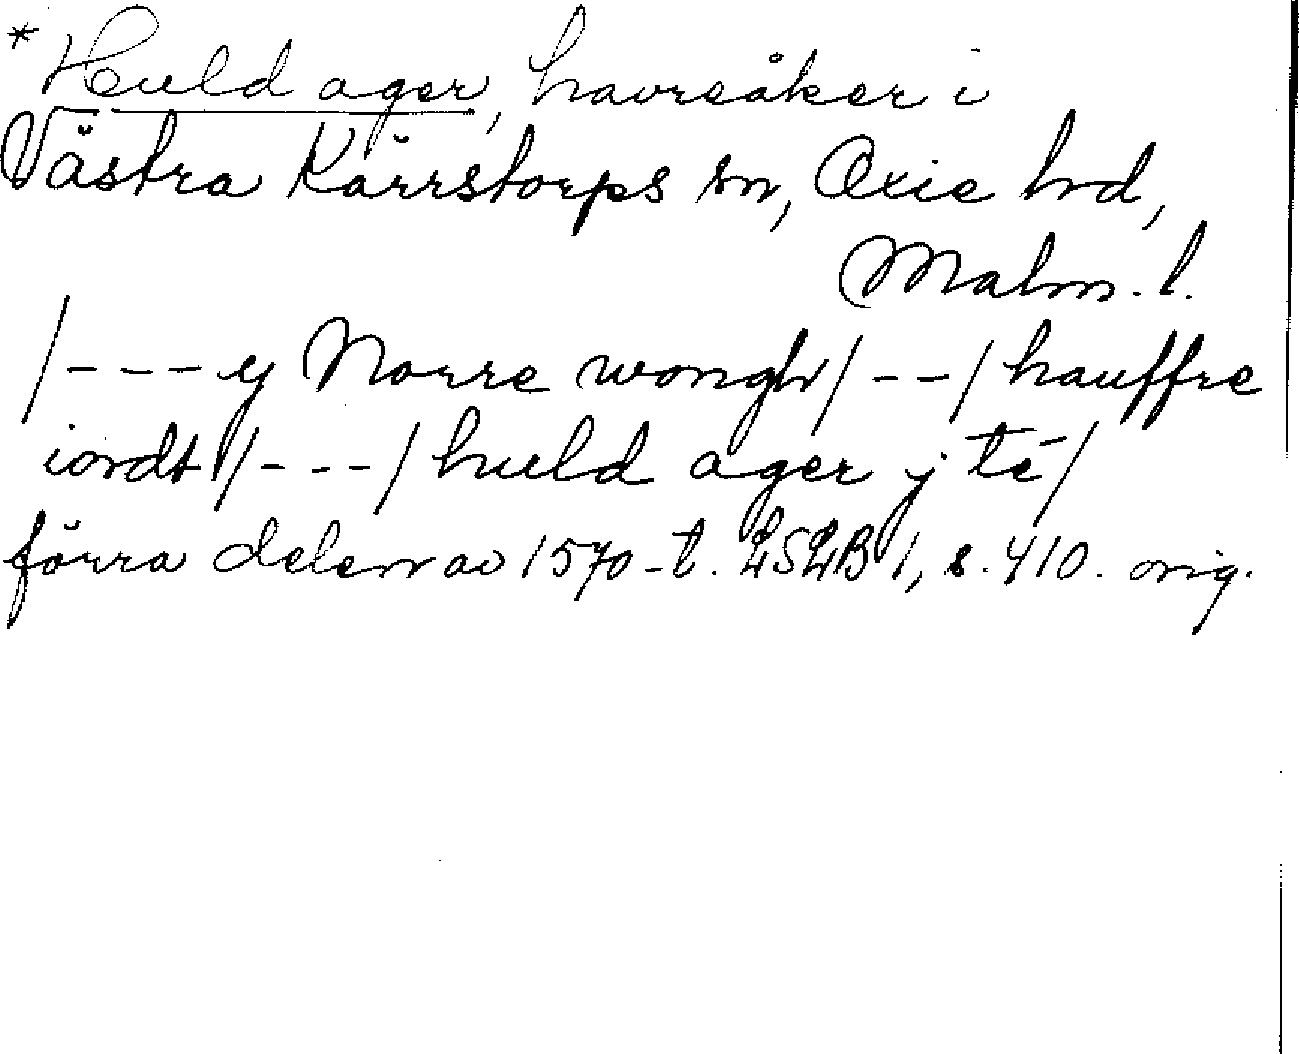 * Huld ager, havreåker i
Västra Kärrstorps sn, Oxie hd,
Malm. l.
/---y Norre wongh/--/hauffre
iordt/---/huld ager j té/
förra delen av 1570-t. LSLB 1, s. 410. orig.